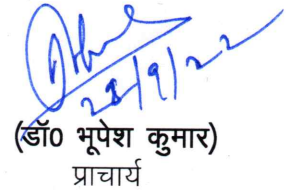 28/9/22
(डॉ0 भूपेश कुमार)
प्राचार्य